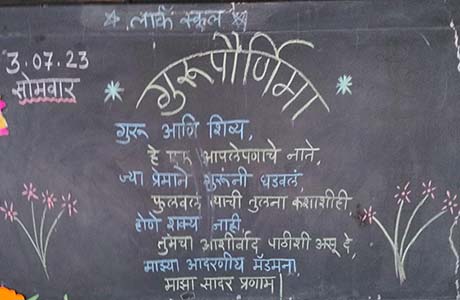 लार्क स्कूल
3.07.23
सोमवार
गुरूपौर्णिमा
गुरू आणि शिष्य,
हे एक आपलेपणाचे नाते,
ज्या प्रेमाने गुरूंनी घडवलं,
फुलवलं त्याची तुलना कशाशीही,
होणे शक्य नाही
तुमचा आशीर्वाद पाठीशी असू दे,
माझ्या आदरणीय मॅडमना,
माझा सादर प्रणाम|